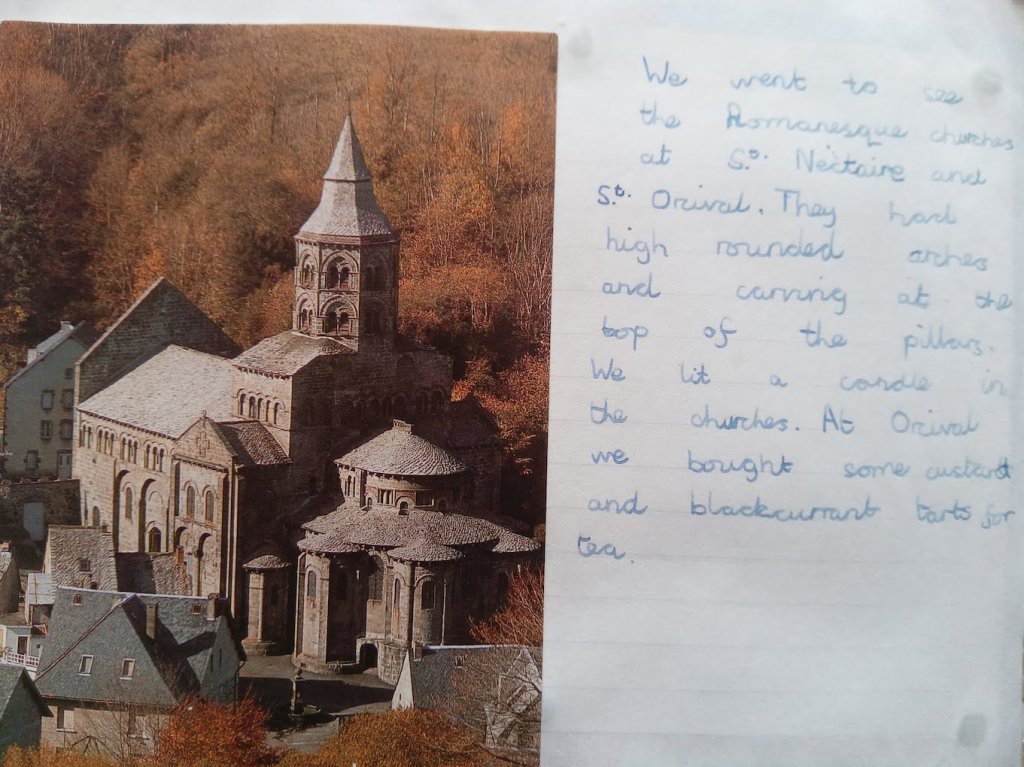 We went to see
the Romanesque churches
at St. Nectaire and
St. Orcival. They had
high rounded arches
and carving at the
top of the pillars.
We lit a candle in
the churches. At Orcival
we bought some custard
and blackcurrant tarts for
tea.